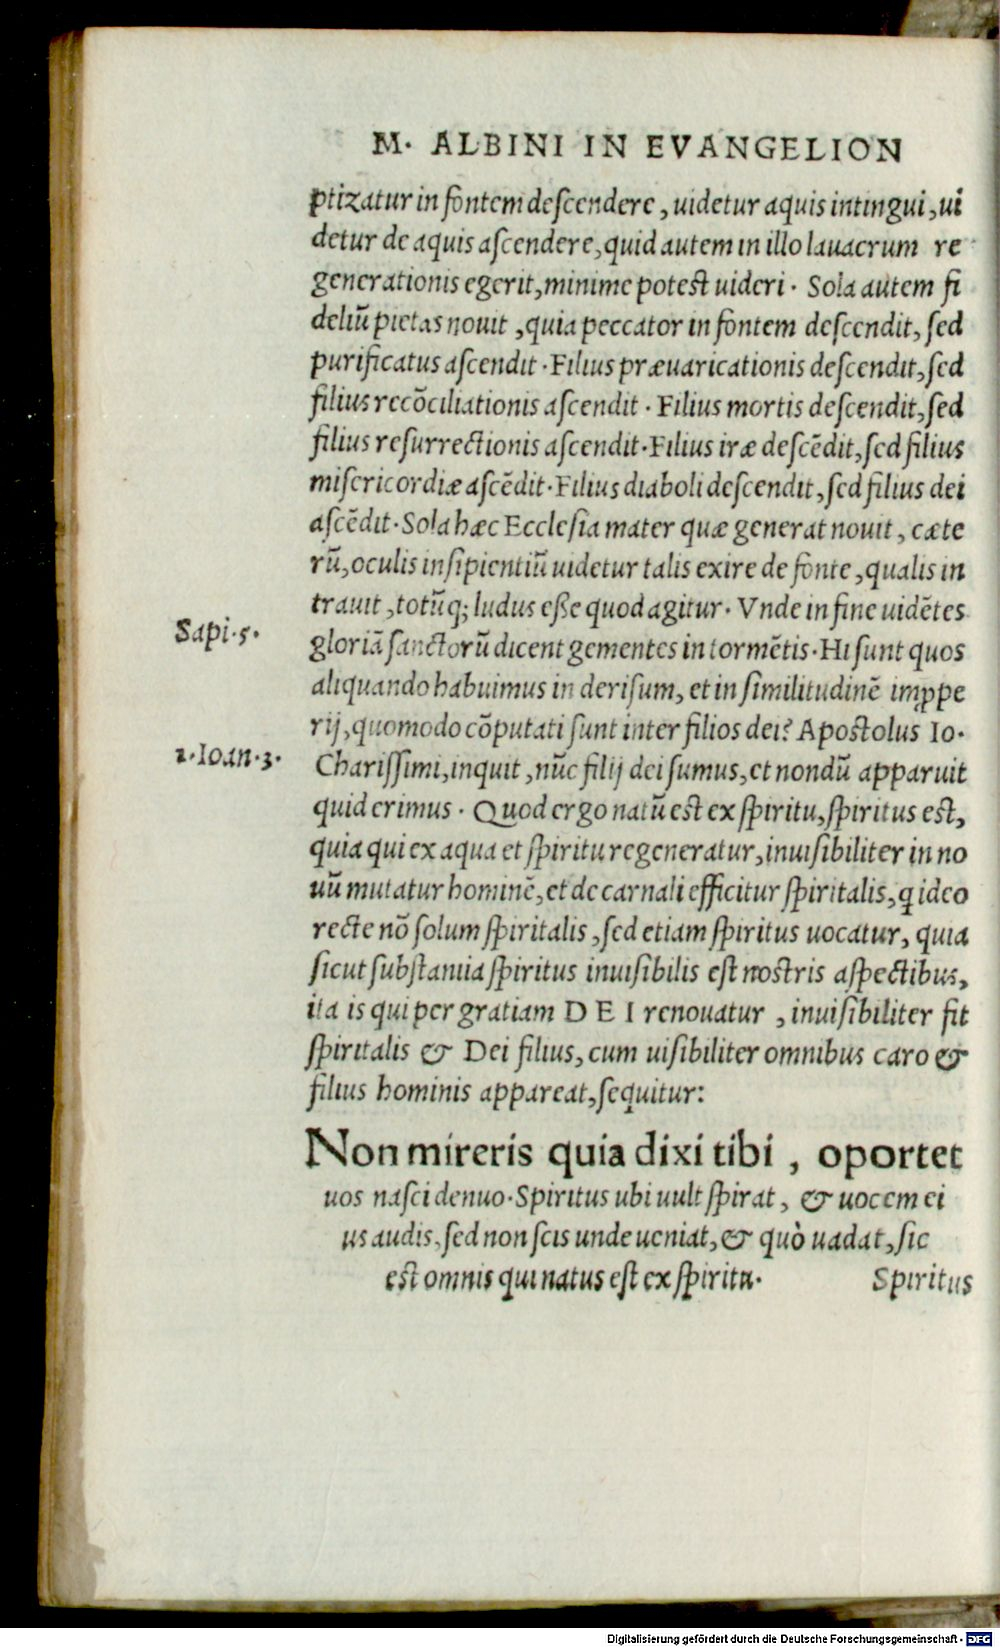 M. ALBINI IN EVANGELION
ptizatur in fontem deſcendere, uidetur aquis intingui, ui
detur de aquis aſcendere, quid autem in illo lauacrum re
generationis egerit, minime potest uideri. Sola autem fi
deliũ pietas nouit, quia peccator in fontem deſcendit, ſed
purificatus aſcendit. Filius præuaricationis deſcendit, ſed
filius recõciliationis aſcendit. Filius mortis deſcendit, ſed
filius reſurrectionis aſcendit. Filius iræ deſcẽdit, ſed filius
miſericordiæ aſcẽdit. Filius diaboli deſcendit, ſed filius dei
aſcẽdit. Sola hæc Eccleſia mater quæ generat nouit, cæte
rũ, oculis inſipientiũ uidetur talis exire de fonte, qualis in
trauit, totũq; ludus eſſe quod agitur. Vnde in fine uidẽtes
Sapi. 5.
gloriã ſanctorũ dicent gementes in tormẽtis. Hi ſunt quos
aliquando habuimus in deriſum, et in ſimilitudinẽ imꝓpe
rij, quomodo cõputati ſunt inter filios dei? Apoſtolus Io.
1. Ioan. 3.
Chariſſimi, inquit, nũc filij dei ſumus, et nondũ apparuit
quid erimus. Quod ergo natũ est ex ſpiritu, ſpiritus eſt,
quia qui ex aqua et ſpiritu regeneratur, inuiſibiliter in no
uũ mutatur hominẽ, et de carnali efficitur ſpiritalis, ꝗ ideo
recte nõ ſolum ſpiritalis, ſed etiam ſpiritus uocatur, quia
ſicut ſubſtantia ſpiritus inuiſibilis eſt nostris aſpectibus,
ita is qui per gratiam DEI renouatur, inuiſibiliter fit
ſpiritalis & Dei filius, cum uiſibiliter omnibus caro &
filius hominis appareat, ſequitur:
Non mireris quia dixi tibi, oportet
uos naſci denuo. Spiritus ubi uult ſpirat, & uocem ei
us audis, ſed non ſcis unde ueniat, & quò uadat, ſic
est omnis qui natus eſt ex ſpiritu.
Spiritus
Digitalisierung gefördert durch die Deutsche Forschungsgemeinschaft - DFG